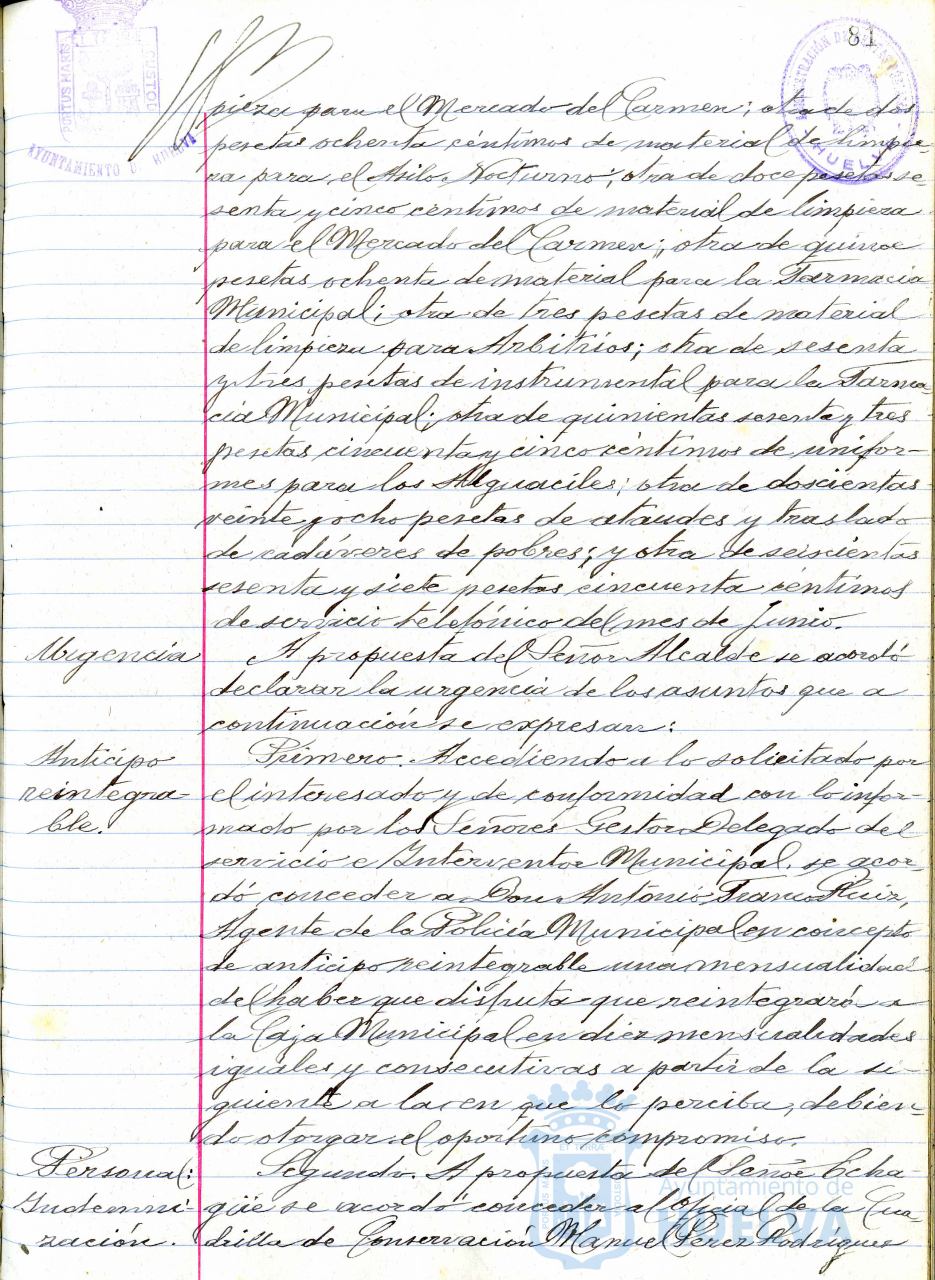 81
pieza para el Mercado del Carmen; otra de dos
pesetas ochenta céntimos de material de limpie-
za para el Asilo Nocturno; otra de doce pesetas se-
senta y cinco céntimos de material de limpieza
para el Mercado del Carmen; otra de quince
pesetas ochenta de material para la Farmacia
Municipal; otra de tres pesetas de material
de limpieza para Arbitrios; otra de sesenta
y tres pesetas de instrumental para la Farma
cia Municipal; otra de quinientas sesenta y tres
pesetas cincuenta y cinco céntimos de unifor-
mes para los Alguaciles; otra de doscientas
veinte y ocho pesetas de ataudes y traslado
de cadáveres de pobres; y otra de seiscientas
sesenta y siete pesetas cincuenta céntimos
de servicio telefónico del mes de Junio.
Urgencia
A propuesta del Señor Alcalde se acordó
declarar la urgencia de los asuntos que a
continuación se expresan:
Anticipo
reintegra-
ble.
Primero. Accediendo a lo solicitado por
el interesado y de conformidad con lo infor-
mado por los Señores Gestor Delegado del
servicio e Interventor Municipal, se acor-
dó conceder a Don Antonio Franco Ruiz,
Agente de la Policía Municipal en concepto
de anticipo reintegrable una mensualidad
del haber que disfruta que reintegrará a
la Caja Municipal en diez mensualidades
iguales y consecutivas a partir de la si-
guiente a la en que lo perciba, debien-
do otorgar el oportuno compromiso.
Personal:
Indemni-
zación.
Segundo. A propuesta del Señor Echa-
güe se acordó conceder al Oficial de la Cua-
drilla de Conservación Manuel Pérez Rodríguez
AYUNTAMIENTO DE HUELVA
PORTUS MARIS
HUELVA
Ayuntamiento de
HUELVA